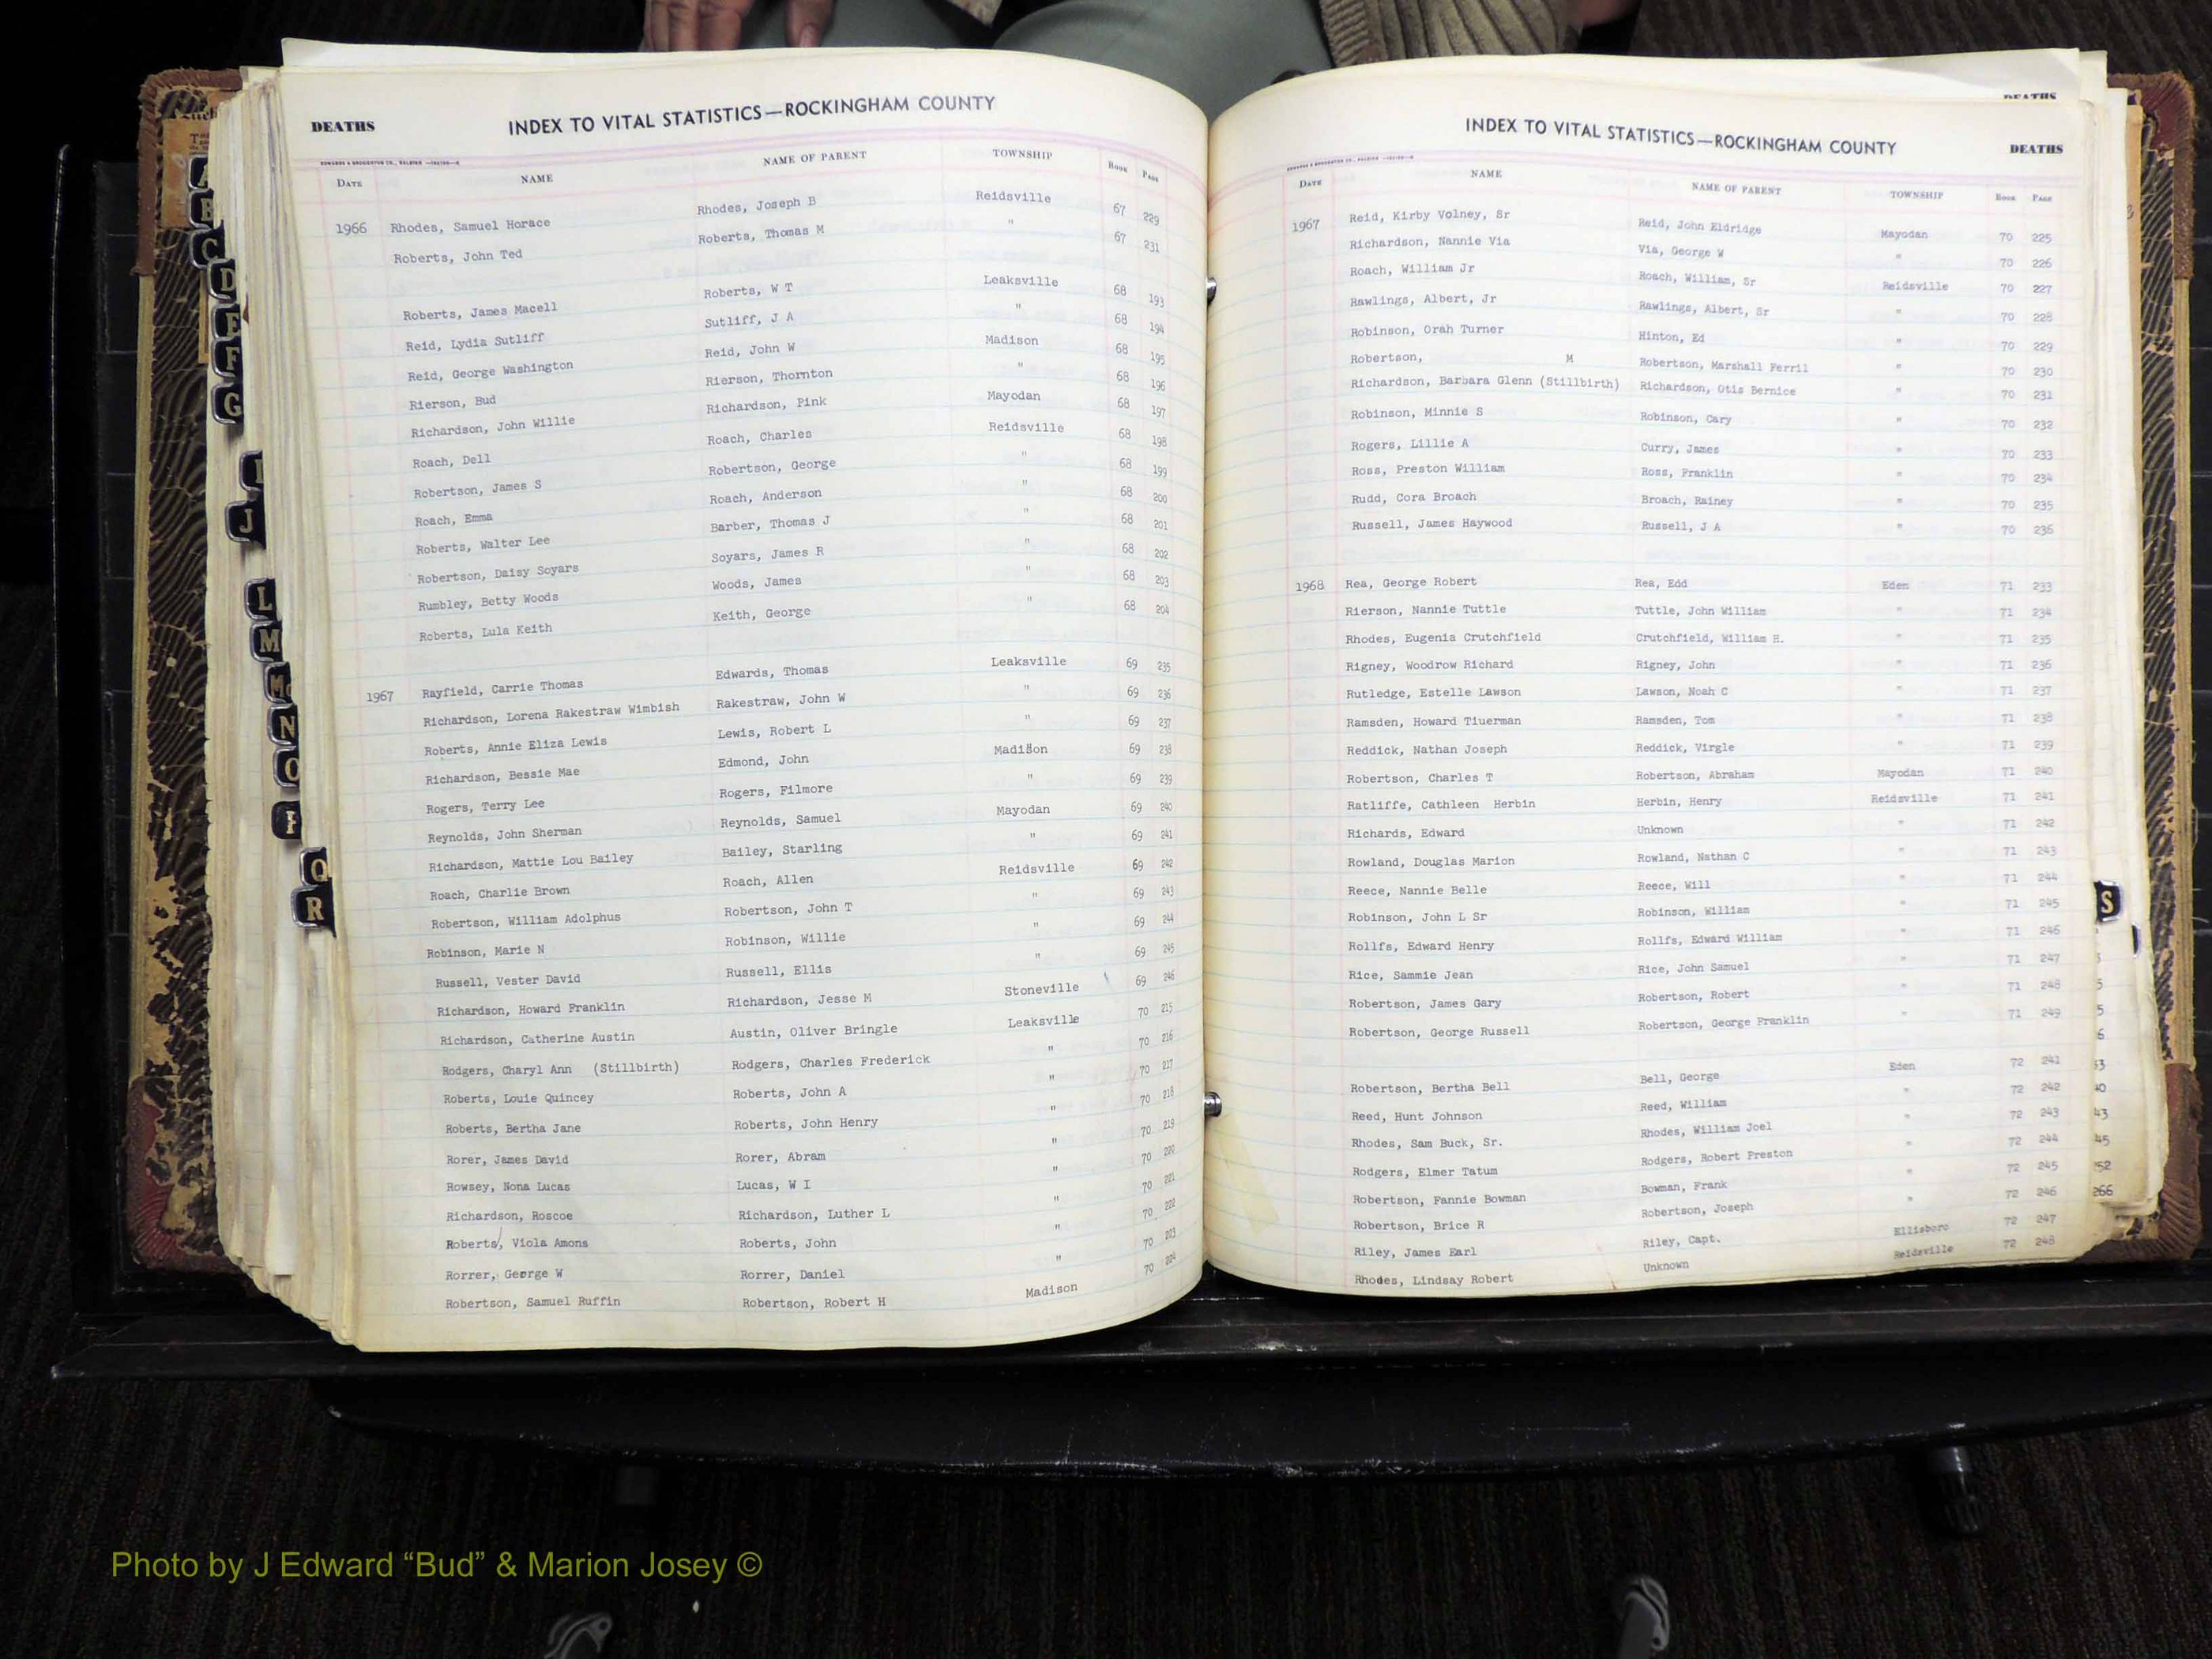 DEATHS INDEX TO VITAL STATISTICS—ROCKINGHAM COUNTY
DATE NAME NAME OF PARENT TOWNSHIP BOOK PAGE
1966 Rhodes, Samuel Horace Rhodes, Joseph B Reidsville 67 229
Roberts, John Ted Roberts, Thomas M " 67 231
Roberts, James Macell Roberts, W T Leaksville 68 193
Reid, Lydia Sutliff Sutliff, J A " 68 194
Reid, George Washington Reid, John W Madison 68 195
Rierson, Bud Rierson, Thornton " 68 196
Richardson, John Willie Richardson, Pink Mayodan 68 197
Roach, Dell Roach, Charles Reidsville 68 198
Robertson, James S Robertson, George " 68 199
Roach, Emma Roach, Anderson " 68 200
Roberts, Walter Lee Barber, Thomas J " 68 201
Robertson, Daisy Soyars Soyars, James R " 68 202
Rumbley, Betty Woods Woods, James " 68 203
Roberts, Lula Keith Keith, George " 68 204
1967 Rayfield, Carrie Thomas Edwards, Thomas Leaksville 69 235
Richardson, Lorena Rakestraw Wimbish Rakestraw, John W " 69 236
Roberts, Annie Eliza Lewis Lewis, Robert L " 69 237
Richardson, Bessie Mae Edmond, John Madison 69 238
Rogers, Terry Lee Rogers, Filmore " 69 239
Reynolds, John Sherman Reynolds, Samuel Mayodan 69 240
Richardson, Mattie Lou Bailey Bailey, Starling " 69 241
Roach, Charlie Brown Roach, Allen Reidsville 69 242
Robertson, William Adolphus Robertson, John T " 69 243
Robinson, Marie N Robinson, Willie " 69 244
Russell, Vester David Russell, Ellis " 69 245
Richardson, Howard Franklin Richardson, Jesse M Stoneville 69 246
Richardson, Catherine Austin Austin, Oliver Bringle Leaksville 70 215
Rodgers, Charyl Ann (Stillbirth) Rodgers, Charles Frederick " 70 216
Roberts, Louie Quincey Roberts, John A " 70 217
Roberts, Bertha Jane Roberts, John Henry " 70 218
Rorer, James David Rorer, Abram " 70 219
Rowsey, Nona Lucas Lucas, W I " 70 220
Richardson, Roscoe Richardson, Luther L " 70 221
Roberts, Viola Amons Roberts, John " 70 222
Rorrer, George W Rorrer, Daniel " 70 223
Robertson, Samuel Ruffin Robertson, Robert H Madison 70 224
INDEX TO VITAL STATISTICS—ROCKINGHAM COUNTY DEATHS
DATE NAME NAME OF PARENT TOWNSHIP BOOK PAGE
1967 Reid, Kirby Volney, Sr Reid, John Eldridge Mayodan 70 225
Richardson, Nannie Via Via, George W " 70 226
Roach, William Jr Roach, William, Sr Reidsville 70 227
Rawlings, Albert, Jr Rawlings, Albert, Sr " 70 228
Robinson, Orah Turner Hinton, Ed " 70 229
Robertson, M Robertson, Marshall Ferril " 70 230
Richardson, Barbara Glenn (Stillbirth) Richardson, Otis Bernice " 70 231
Robinson, Minnie S Robinson, Cary " 70 232
Rogers, Lillie A Curry, James " 70 233
Ross, Preston William Ross, Franklin " 70 234
Rudd, Cora Broach Broach, Rainey " 70 235
Russell, James Haywood Russell, J A " 70 236
1968 Rea, George Robert Rea, Edd Eden 71 233
Rierson, Nannie Tuttle Tuttle, John William " 71 234
Rhodes, Eugenia Crutchfield Crutchfield, William H. " 71 235
Rigney, Woodrow Richard Rigney, John " 71 236
Rutledge, Estelle Lawson Lawson, Noah C " 71 237
Ramsden, Howard Tiuerman Ramsden, Tom " 71 238
Reddick, Nathan Joseph Reddick, Virgle " 71 239
Robertson, Charles T Robertson, Abraham Mayodan 71 240
Ratliffe, Cathleen Herbin Herbin, Henry Reidsville 71 241
Richards, Edward Unknown " 71 242
Rowland, Douglas Marion Rowland, Nathan C " 71 243
Reece, Nannie Belle Reece, Will " 71 244
Robinson, John L Sr Robinson, William " 71 245
Rollfs, Edward Henry Rollfs, Edward William " 71 246
Rice, Sammie Jean Rice, John Samuel " 71 247
Robertson, James Gary Robertson, Robert " 71 248
Robertson, George Russell Robertson, George Franklin " 71 249
Robertson, Bertha Bell Bell, George Eden 72 241
Reed, Hunt Johnson Reed, William " 72 242
Rhodes, Sam Buck, Sr. Rhodes, William Joel " 72 243
Rodgers, Elmer Tatum Rodgers, Robert Preston " 72 244
Robertson, Fannie Bowman Bowman, Frank " 72 245
Robertson, Brice R Robertson, Joseph " 72 246
Riley, James Earl Riley, Capt. Ellisboro 72 247
Rhodes, Lindsay Robert Unknown Reidsville 72 248
D
E
F
G
J
L
M
N
O
Q
R
S
266
Photo by J Edward “Bud” & Marion Josey ©